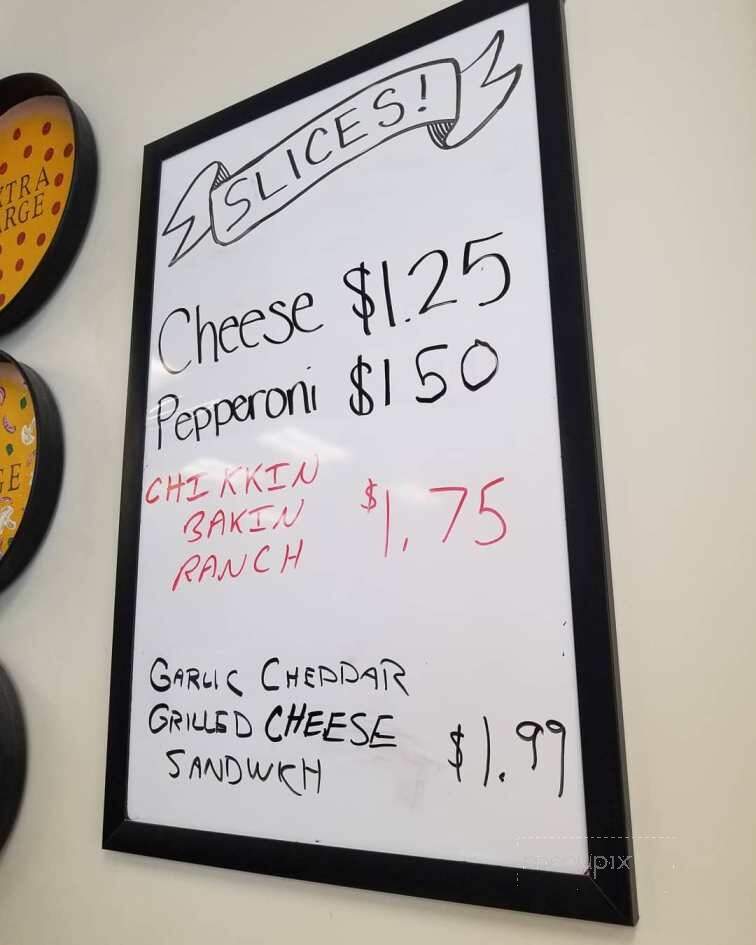 SLICES!
Cheese $1.25
Pepperoni $1 50
CHIKKIN
BAKIN $1.75
RANCH
GARLIC CHEDDAR
GRILLED CHEESE
SANDWCH $1.99
XTRA
ARGE
GE